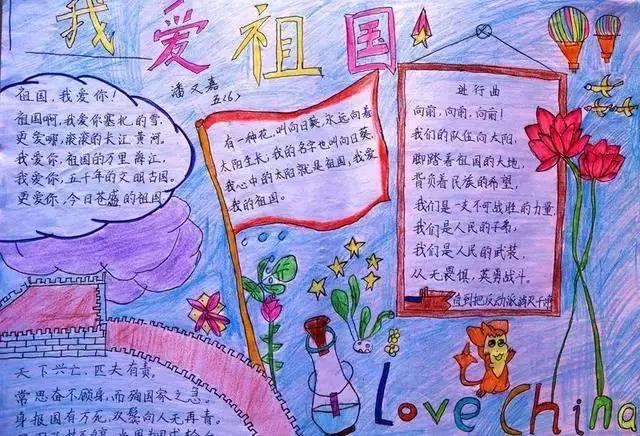 我爱祖国
潘又嘉
五(6)
祖国,我爱你!
祖国啊,我爱你塞北的雪,
更爱哪,滚滚的长江黄河。
我爱你,祖国的万里江,
我爱你,五千年的文明古国。
更爱你,今日苍盛的祖国
有一种花,叫向日葵,永远向着
太阳生长,我的名字也叫向日葵,
我心中的太阳就是祖国,我爱
我的祖国。
进行曲
向前,向前,向前!
我们的队伍向太阳,
脚踏着祖国的大地,
背负着民族的希望,
我们是一支不可战胜的力量,
我们是人民的子弟,
我们是人民的武装,
从无畏惧,英勇战斗。
直到把反动派消灭干净
天下兴亡,匹夫有责。
常思奋不顾身,而殉国家之急。
身报国有万死,双鬓向人无再青。
Love China